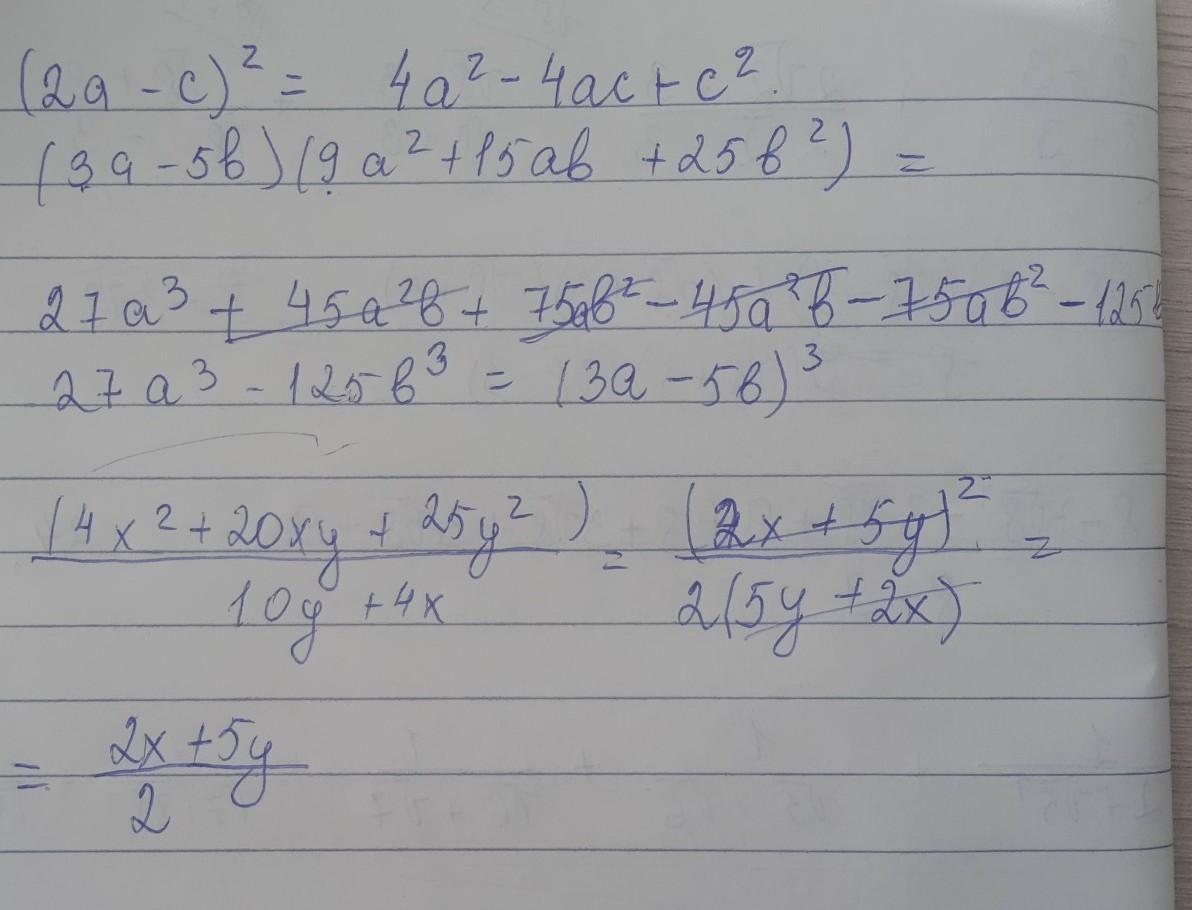 (2a - c)² = 4a² - 4ac + c².
(3a - 5b)(9a² + 15ab + 25b²) =
27a³ + 45a²b + 75ab² - 45a²b - 75ab² - 125b
27a³ - 125b³ = (3a - 5b)³
(4x² + 20xy + 25y²) / 10y + 4x = (2x + 5y)² / 2(5y + 2x) =
= 2x + 5y / 2